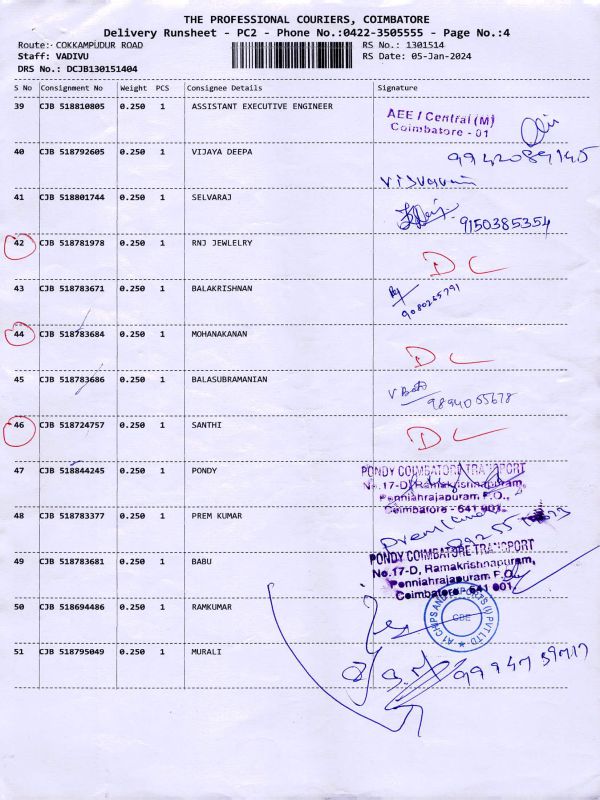 THE PROFESSIONAL COURIERS, COIMBATORE
Delivery Runsheet - PC2 - Phone No.:0422-3505555 - Page No.:4
Route:- COKKAMPUDUR ROAD RS No.: 1301514
Staff: VADIVU RS Date: 05-Jan-2024
DRS No.: DCJB130151404
S No Consignment No Weight PCS Consignee Details Signature
39 CJB 518810805 0.250 1 ASSISTANT EXECUTIVE ENGINEER
AEE / Central (M)
Coimbatore - 01
40 CJB 518792605 0.250 1 VIJAYA DEEPA
41 CJB 518801744 0.250 1 SELVARAJ
9150385354
42 CJB 518781978 0.250 1 RNJ JEWLELRY
DC
43 CJB 518783671 0.250 1 BALAKRISHNAN
9080265791
44 CJB 518783684 0.250 1 MOHANAKANAN
DC
45 CJB 518783686 0.250 1 BALASUBRAMANIAN
9894055678
46 CJB 518724757 0.250 1 SANTHI
DC
47 CJB 518844245 0.250 1 PONDY
PONDY COIMBATORE TRANSPORT
No.17-D, Ramakrishnapuram,
Ponniahrajapuram P.O.,
Coimbatore - 641 001.
48 CJB 518783377 0.250 1 PREM KUMAR
49 CJB 518783681 0.250 1 BABU
PONDY COIMBATORE TRANSPORT
No.17-D, Ramakrishnapuram,
Ponniahrajapuram P.O.,
Coimbatore 641 001.
50 CJB 518694486 0.250 1 RAMKUMAR
CBE
51 CJB 518795049 0.250 1 MURALI